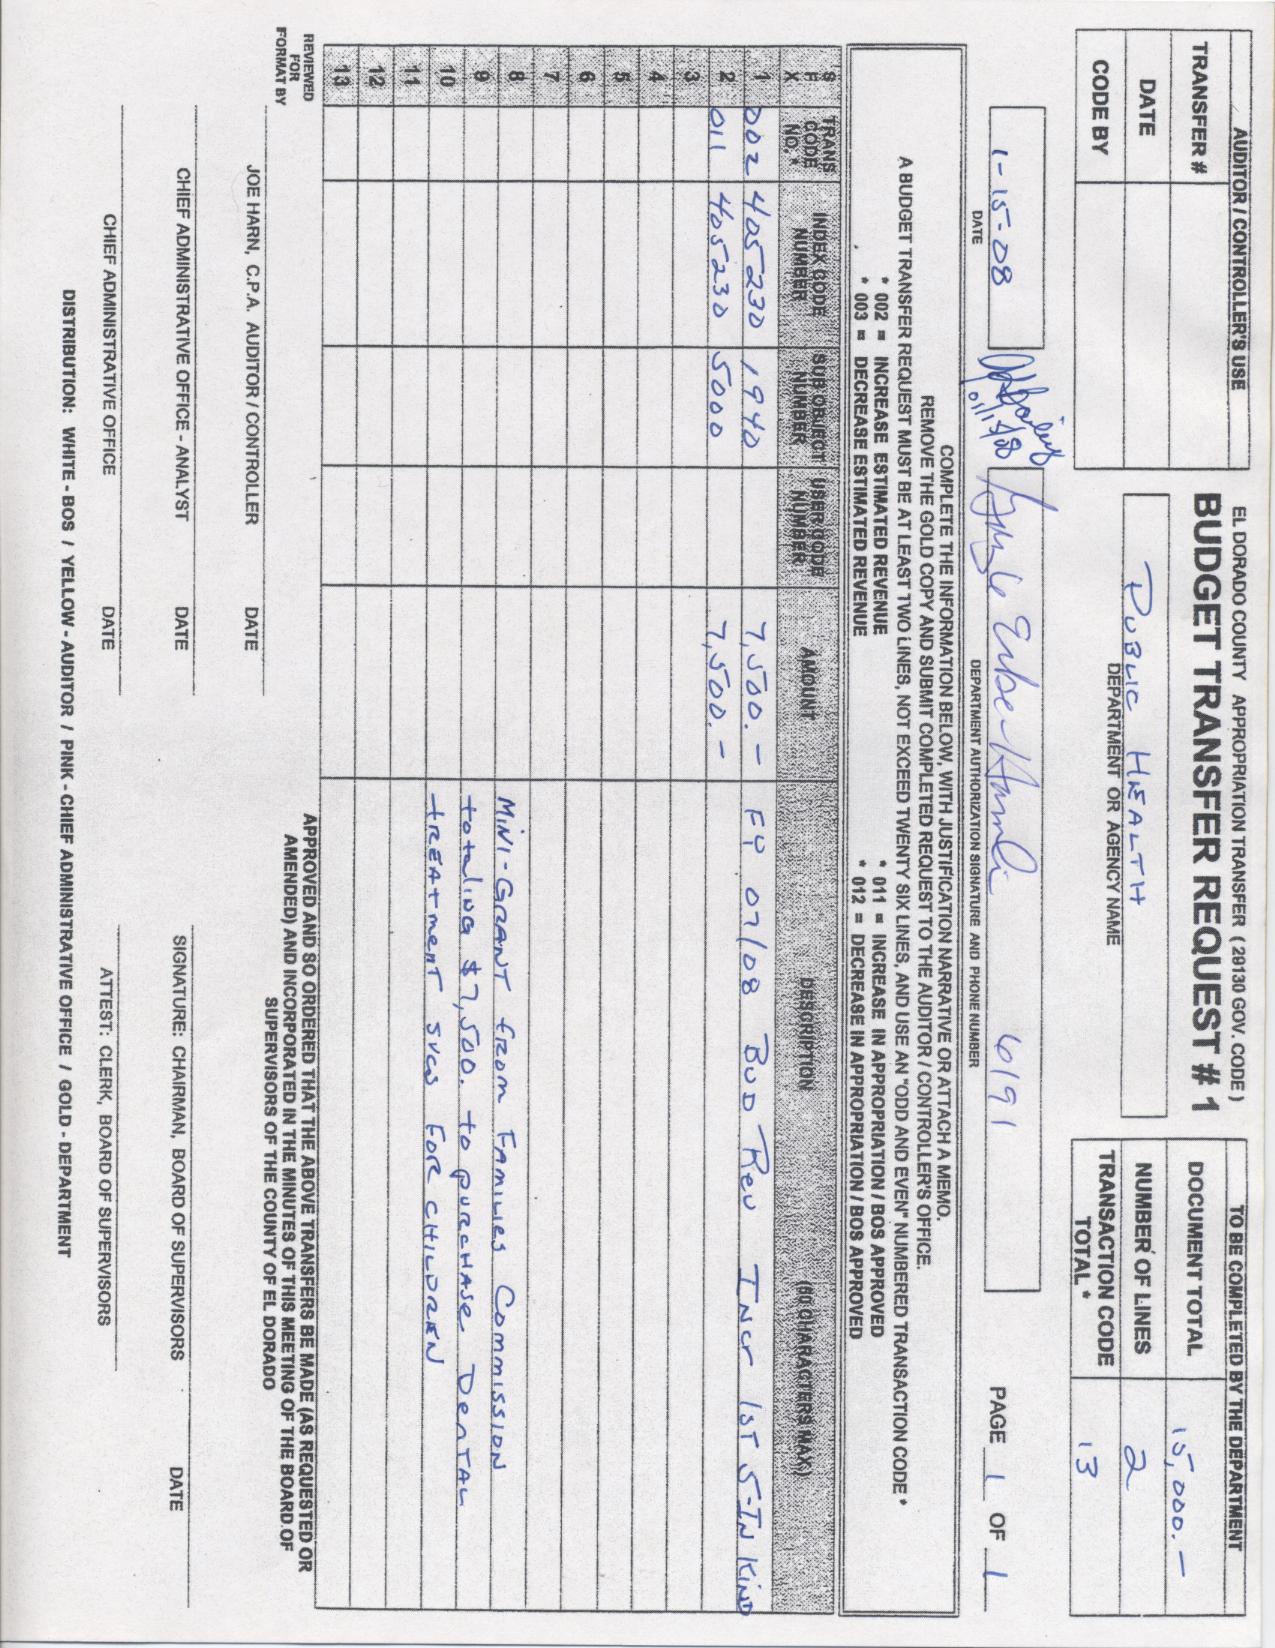 AUDITOR / CONTROLLER'S USE
TRANSFER #
DATE
CODE BY
EL DORADO COUNTY APPROPRIATION TRANSFER ( 29130 GOV. CODE )
BUDGET TRANSFER REQUEST # 1
PUBLIC HEALTH
DEPARTMENT OR AGENCY NAME
TO BE COMPLETED BY THE DEPARTMENT
DOCUMENT TOTAL 15,000.-
NUMBER OF LINES 2
TRANSACTION CODE TOTAL * 13
1-15-08
DATE
6191
DEPARTMENT AUTHORIZATION SIGNATURE AND PHONE NUMBER
PAGE 1 OF 1
COMPLETE THE INFORMATION BELOW, WITH JUSTIFICATION NARRATIVE OR ATTACH A MEMO.
REMOVE THE GOLD COPY AND SUBMIT COMPLETED REQUEST TO THE AUDITOR / CONTROLLER'S OFFICE.
A BUDGET TRANSFER REQUEST MUST BE AT LEAST TWO LINES, NOT EXCEED TWENTY SIX LINES, AND USE AN "ODD AND EVEN" NUMBERED TRANSACTION CODE *
* 002 = INCREASE ESTIMATED REVENUE * 011 = INCREASE IN APPROPRIATION / BOS APPROVED
* 003 = DECREASE ESTIMATED REVENUE * 012 = DECREASE IN APPROPRIATION / BOS APPROVED
S F X TRANS CODE NO. * INDEX CODE NUMBER SUB OBJECT NUMBER USER CODE NUMBER AMOUNT DESCRIPTION (50 CHARACTERS MAX.)
1 002 405230 1940 7,500.- FY 07/08 BUD Rev INcr 1ST 5-IN KIND
2 011 405230 5000 7,500.-
3
4
5
6
7
8 MINI-GRANT from FAMILIES COMMISSION
9 totaling $7,500. to purchase DENTAL
10 treatment svcs FOR CHILDREN
11
12
13
REVIEWED FOR FORMAT BY
JOE HARN, C.P.A. AUDITOR / CONTROLLER DATE
CHIEF ADMINISTRATIVE OFFICE - ANALYST DATE
CHIEF ADMINISTRATIVE OFFICE DATE
APPROVED AND SO ORDERED THAT THE ABOVE TRANSFERS BE MADE (AS REQUESTED OR
AMENDED) AND INCORPORATED IN THE MINUTES OF THIS MEETING OF THE BOARD OF
SUPERVISORS OF THE COUNTY OF EL DORADO
SIGNATURE: CHAIRMAN, BOARD OF SUPERVISORS DATE
ATTEST: CLERK, BOARD OF SUPERVISORS
DISTRIBUTION: WHITE - BOS / YELLOW - AUDITOR / PINK - CHIEF ADMINISTRATIVE OFFICE / GOLD - DEPARTMENT